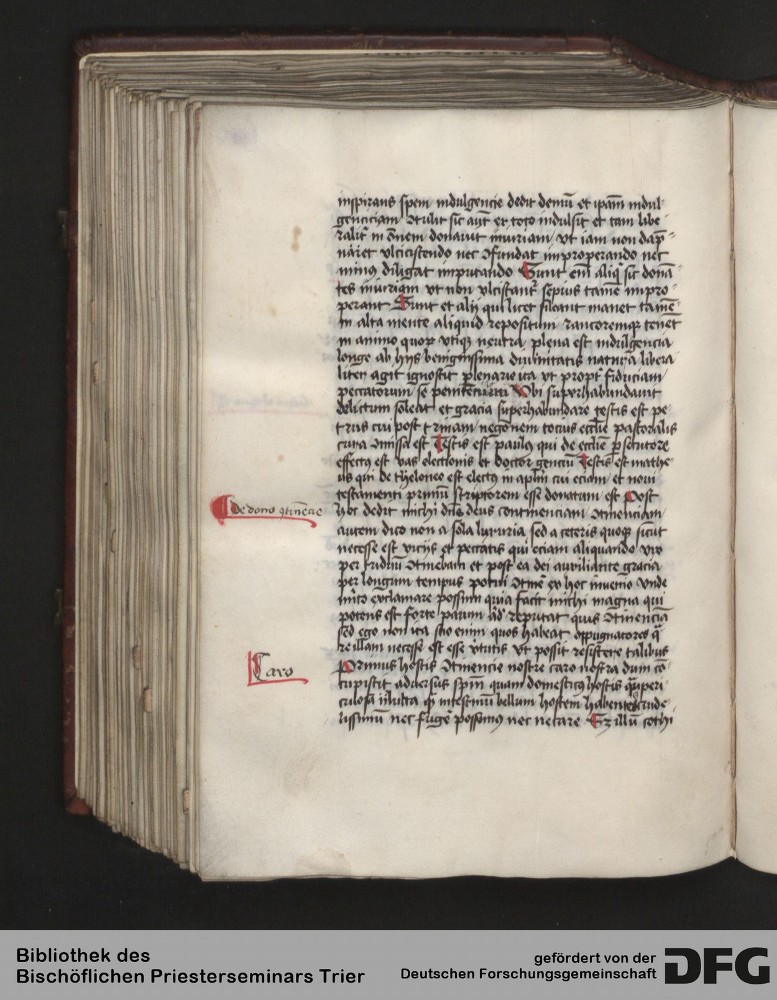 inspirans spem indulgencie dedit demū et ipam indul
genciam ↄtulit sic aūt ex toto indulsit et tam libe
ralit' in ōnem donauit iniuriam vt iam non dāp
naret vlciscendo nec ↄfundat improperando nec
minus diligat imputando Sunt eni aliq' sic donā
tes iniuriam vt non vlciscant' sepius tamē impro
perant Sunt et alij qui licet sileant manet tamē
in alta mente aliquid repositum rancoremqȝ tenēt
in animo quorȝ vtiqȝ neutra plena est indulgencia
longe ab hijs benignissima diuinitatis natura libera
liter agit ignoscit plenarie ita vt propt' fiduciam
peccatorum
Vbi superhabundauit
delictum soleat et gracia superhabundare testis est pe
trus cui post trinam negōnem tocius ecclie pastoralis
cura ↄmissa est Testis est paulus qui de ecclie psecutore
effectus est vas electionis et doctor genciū Testis est mathe
us qui de theloneo est electus in aplm cui eciam et noui
testamenti primū scriptorem esse donatum est Post
hoc dedit michi dns deus continenciam ↄtinenciam
autem dico non a sola luxuria sed a ceteris quoqȝ sicut
necesse est vicijs et peccatis qui eciam aliquando vix
per triduū ↄtinebam et post ea dei auxiliante gracia
per longum tempus potui ↄtine' ex hoc inuenio vnde
mito exclamare possum quia facit michi magna qui
potens est forte parum ad reputat quis ↄtinenciā
sed ego non ita scio enim quos habeat oppugnatores q̄
re illam necesse est esse v'tutis vt possit resistere talibus
Primus hostis ↄtinencie nostre caro nostra dum cō
cupiscit aduersus spm quam domesticus hostis q̄ peri
culosa
intestinū bellum hostem habentes crude
lissimū nec fuge' possumus nec necare Et illū
De dono ↄtinēcie
Caro
Bibliothek des
Bischöflichen Priesterseminars Trier
gefördert von der
Deutschen Forschungsgemeinschaft
DFG